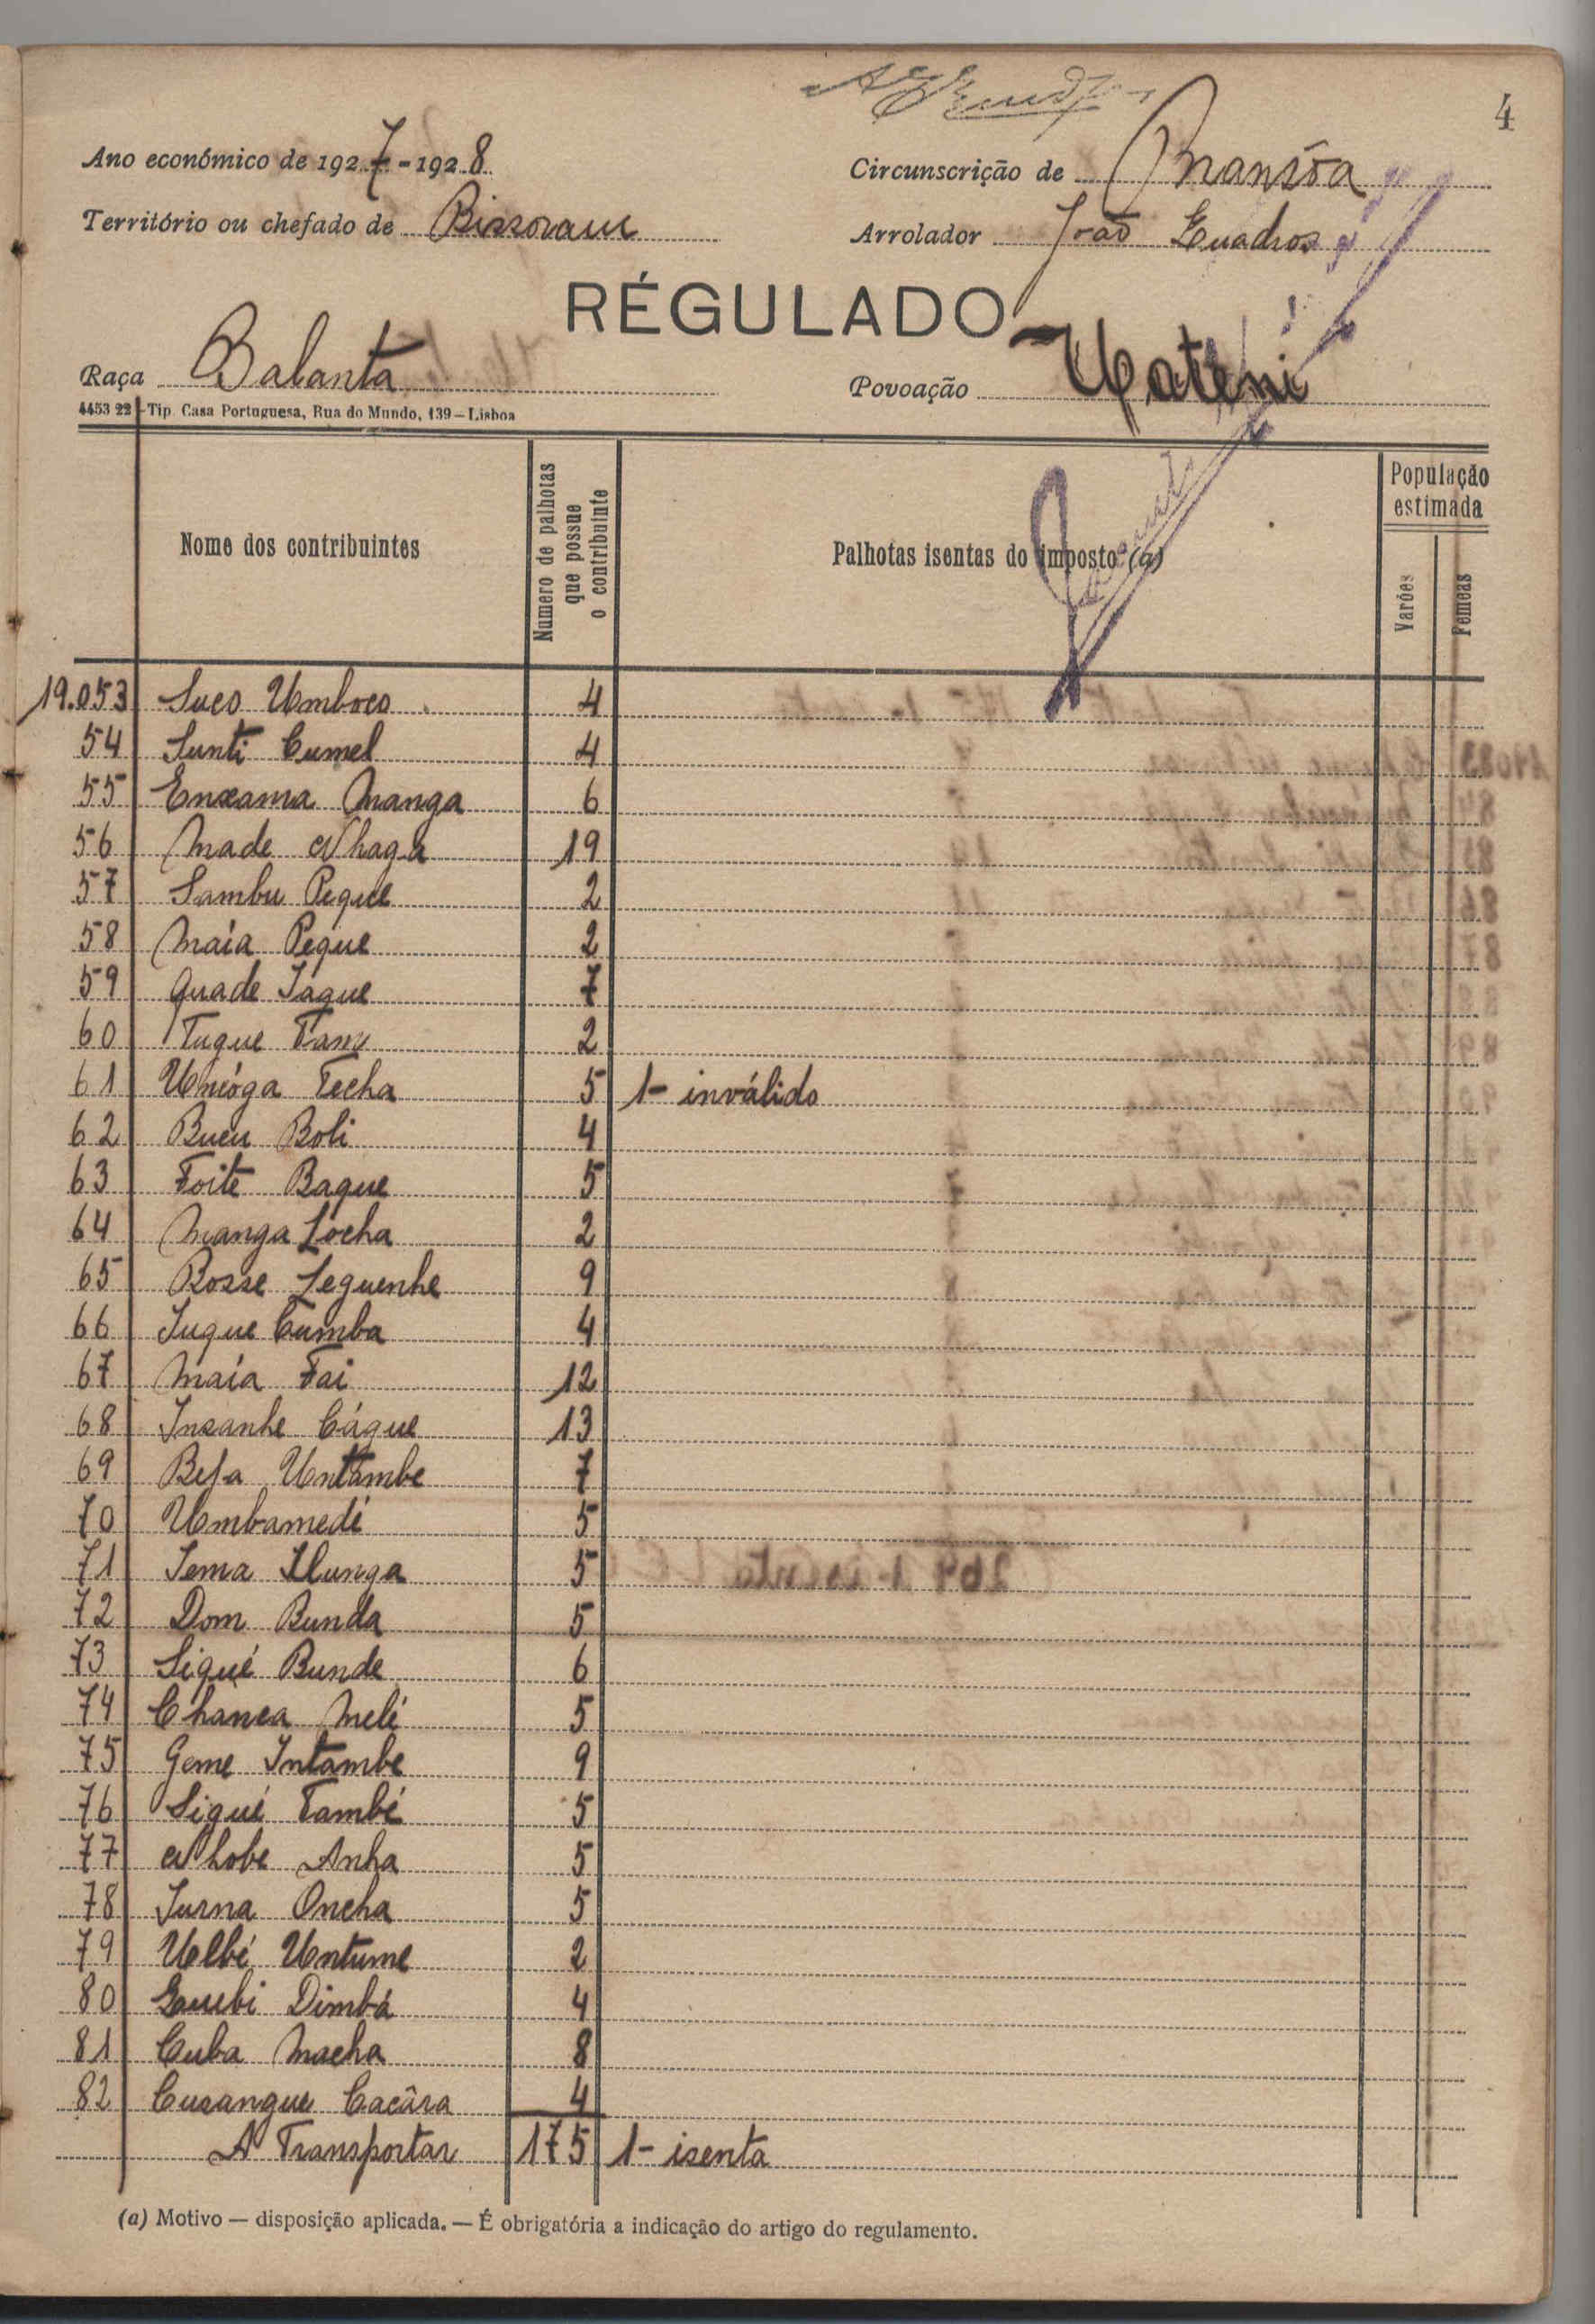 4
Ano económico de 1927-1928
Circunscrição de Mansôa
Território ou chefado de Bissoram
Arrolador João Quadros
RÉGULADO
Raça Balanta
Povoação Uatini
4453 22 - Tip. Casa Portuguesa, Rua do Mundo, 139 - Lisboa
Nome dos contribuintes
Numero de palhotas que possue o contribuinte
Palhotas isentas do imposto (a)
População estimada
Varões
Femeas
19.053 Suco Umboco 4
54 Sunti Cumel 4
55 Enxama Manga 6
56 Made Nhaga 19
57 Sambu Peque 2
58 Maia Peque 2
59 Quade Jaque 7
60 Tuque Tam 2
61 Unióga Techa 5 1- inválido
62 Bucu Boli 4
63 Foité Baque 5
64 Manga Locha 2
65 Bosse Leguenhe 9
66 Juque Cumba 4
67 Maia Fai 12
68 Insanhe Cáque 13
69 Befa Untambe 7
70 Umbamedi 5
71 Sema Ilunga 5
72 Dom Bunda 5
73 Siqué Bunde 6
74 Chanca Melé 5
75 Geme Intambe 9
76 Siqué També 5
77 Nhobe Anha 5
78 Jurna Oncha 5
79 Uelbé Untume 2
80 Dimbá 4
81 Cuba Macha 8
82 Cusangue Cacâra 4
A Transportar 175 1- isenta
(a) Motivo — disposição aplicada. — É obrigatória a indicação do artigo do regulamento.